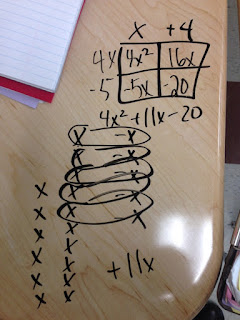 x +4
4x 4x² 16x
-5 -5x -20
4x² +11x -20
x -x
x -x
x -x
x x -x
x x -x
x x
x x
x x
x x
x x
+11x